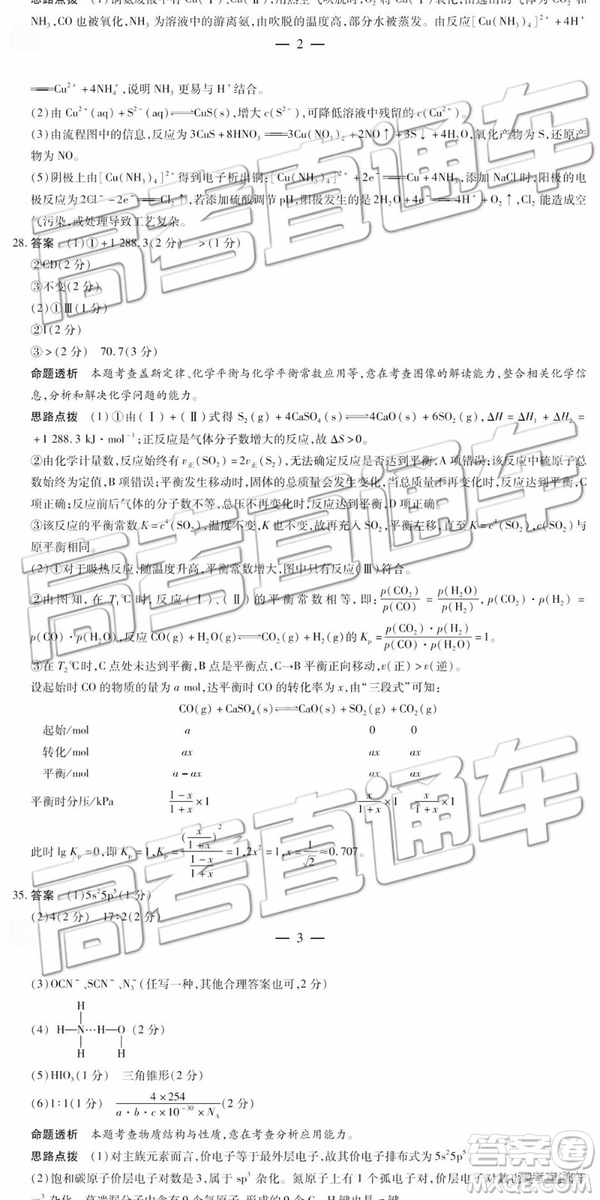 NH₃、CO也被氧化,NH₃为溶液中的游离氨,由吹脱的温度高,部分水被蒸发。由反应[Cu(NH₃)₄]²⁺+4H⁺
— 2 —
══Cu²⁺+4NH₄⁺,说明NH₃更易与H⁺结合。
(2)由Cu²⁺(aq)+S²⁻(aq)⇌CuS(s),增大c(S²⁻),可降低溶液中残留的c(Cu²⁺)。
(3)由流程图中的信息,反应为3CuS+8HNO₃══3Cu(NO₃)₂+2NO↑+3S↓+4H₂O,氧化产物为S,还原产
物为NO。
(5)阴极上由[Cu(NH₃)₄]²⁺得到电子析出铜:[Cu(NH₃)₄]²⁺+2e⁻══Cu+4NH₃,添加NaCl时,阳极的电
极反应为2Cl⁻-2e⁻══Cl₂↑,若添加硫酸调节pH,阳极发生的是2H₂O+4e⁻══4H⁺+O₂↑,Cl₂能造成空
气污染,或处理导致工艺复杂。
28.答案 (1)①+1 288.3(2分) >(1分)
②CD(2分)
③不变(2分)
(2)①Ⅲ(1分)
②1(2分)
③>(2分) 70.7(3分)
命题透析 本题考查盖斯定律、化学平衡与化学平衡常数应用等,意在考查图像的解读能力,整合相关化学信
息,分析和解决化学问题的能力。
思路点拨 (1)①由(Ⅰ)+(Ⅱ)式得S₂(g)+4CaSO₄(s)⇌4CaO(s)+6SO₂(g),ΔH=ΔH₁+ΔH₂=
+1 288.3 kJ·mol⁻¹;正反应是气体分子数增大的反应,故ΔS>0。
②由化学计量数,反应始终有v正(SO₂)=2v正(S₂),无法确定反应是否达到平衡,A项错误;该反应中硫原子总
数始终为定值,B项错误;平衡发生移动时,固体的总质量会发生变化,当总质量不再变化时,反应达到平衡,C
项正确;反应前后气体的分子数不等,总压不再变化时,反应达到平衡,D项正确。
③该反应的平衡常数K=c⁴(SO₂),温度不变,K也不变,故再充入SO₂,平衡左移,直至K=c⁴(SO₂),c(SO₂)与
原平衡相同。
(2)①对于吸热反应,随温度升高,平衡常数增大,图中只有反应(Ⅲ)符合。
②由图知,在T₁℃时,反应(Ⅰ)、(Ⅱ)的平衡常数相等,即:p(CO₂)/p(CO)=p(H₂O)/p(H₂),p(CO₂)·p(H₂)=
p(CO)·p(H₂O),反应CO(g)+H₂O(g)⇌CO₂(g)+H₂(g)的Kp=p(CO₂)·p(H₂)/p(CO)·p(H₂O)=1。
③在T₂℃时,C点处未达到平衡,B点是平衡点,C→B平衡正向移动,v(正)>v(逆)。
设起始时CO的物质的量为a mol,达平衡时CO的转化率为x,由“三段式”可知:
CO(g)+CaSO₄(s)⇌CaO(s)+SO₂(g)+CO₂(g)
起始/mol a 0 0
转化/mol ax ax ax
平衡/mol a-ax ax ax
平衡时分压/kPa (1-x)/(1+x)×1 x/(1+x)×1 x/(1+x)×1
此时lg Kp=0,即Kp=1,Kp=(x/(1+x))²/((1-x)/(1+x))=1,2x²=1,x=1/√2≈0.707。
35.答案 (1)5s²5p⁵(1分)
(2)4(2分) 17:2(2分)
— 3 —
(3)OCN⁻、SCN⁻、N₃⁻(任写一种,其他合理答案也可,2分)
(4) H—N(H)(H)···H—O(H) (2分)
(5)HIO₃(1分) 三角锥形(2分)
(6)1:1(1分) 4×254/(a·b·c×10⁻³⁰×N_A)(2分)
命题透析 本题考查物质结构与性质,意在考查分析应用能力。
思路点拨 (1)对主族元素而言,价电子等于最外层电子,故其价电子排布式为5s²5p⁵。
(2)饱和碳原子价层电子对数是3,sp³杂化。氮原子上有1个孤电子对,价层电子对数
高考直通车
答案圈